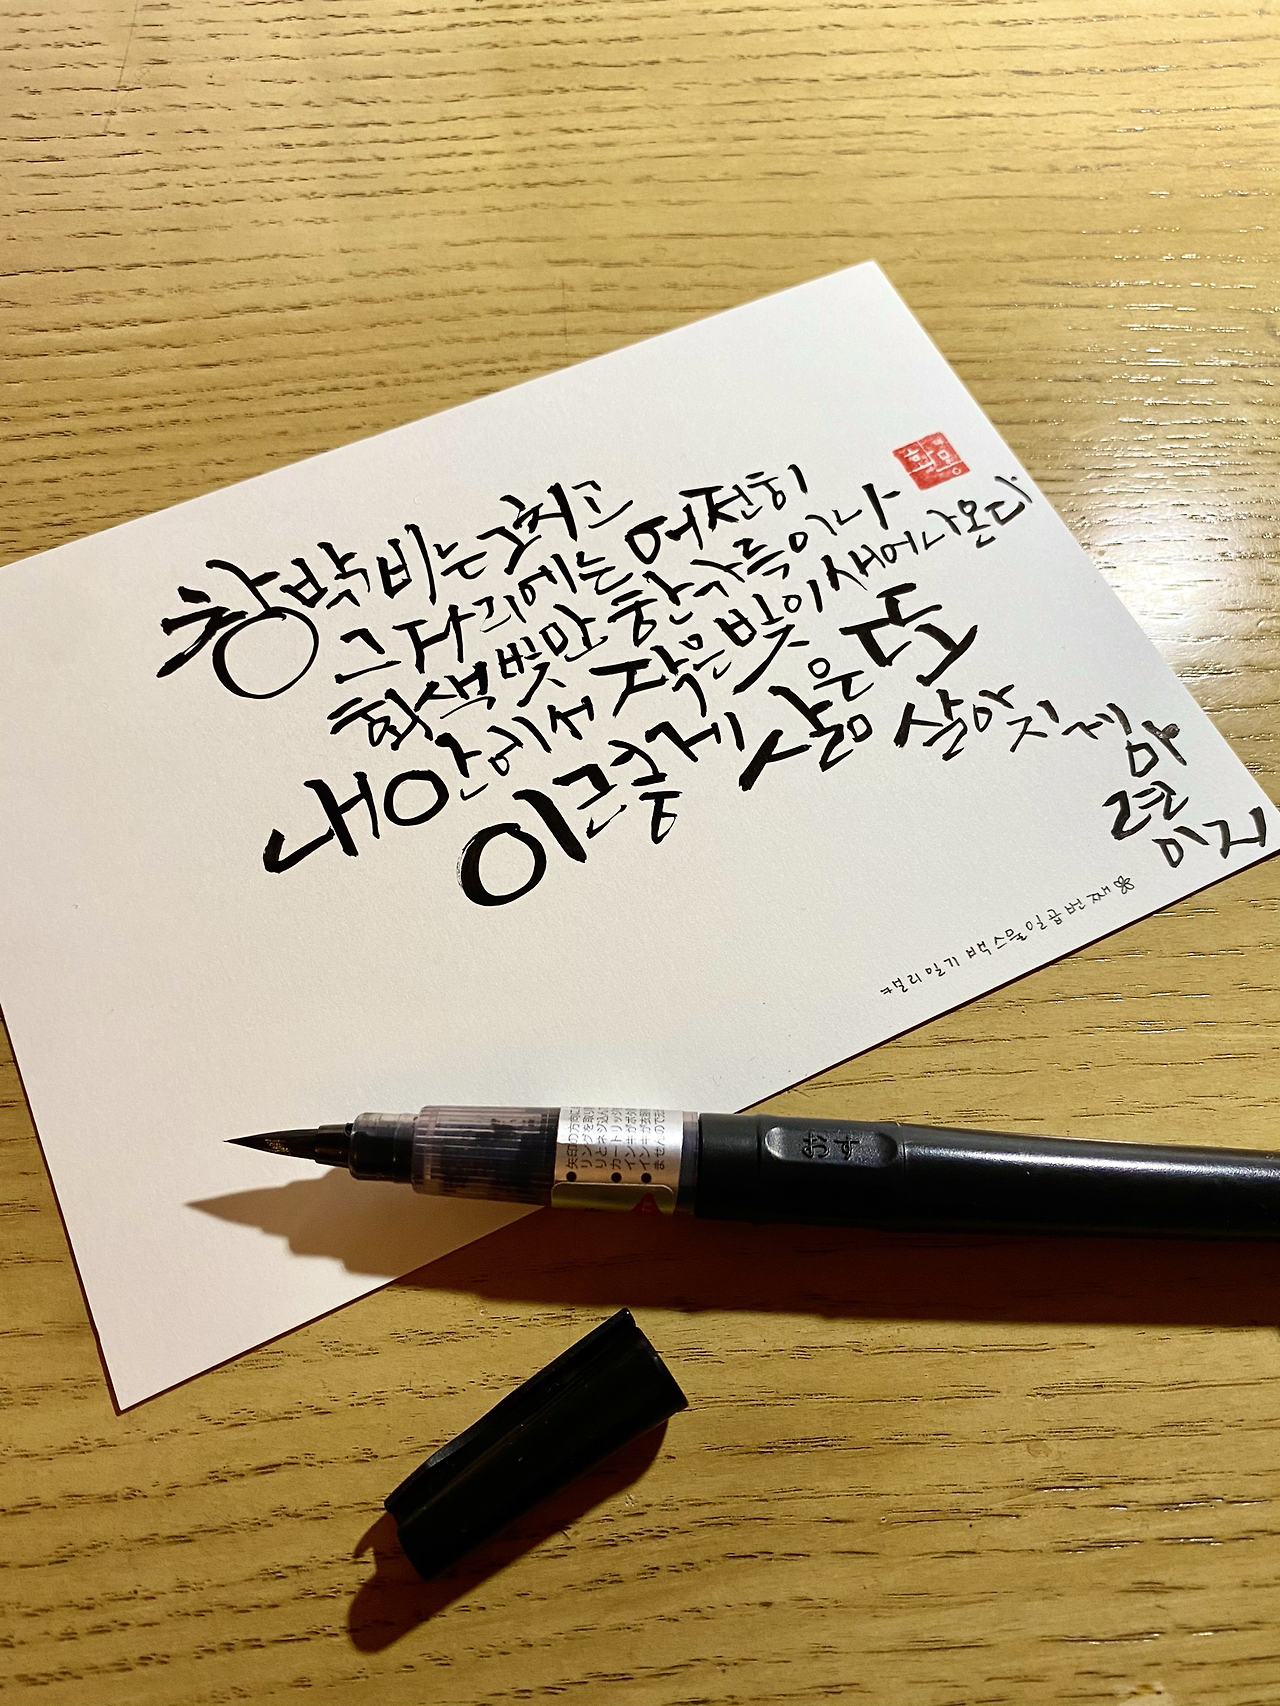 창밖 비는 그치고
그 자리에는 여전히
회색빛만 한가득이나
내 안에서 작은 빛이 새어나온다
이렇게 삶은 또 살아지게 마
련
이지
캘리일기 백스물일곱번째
●矢印の方向に
リングを取り
りとネジ込ん
●カートリッジ
インキがボタ
●インキが衣服
ませんので
おす